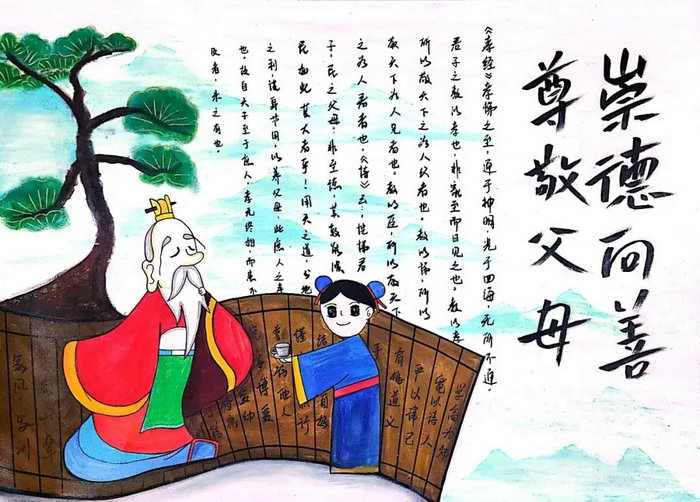 崇德向善
尊敬父母
《孝经》孝悌之至,通于神明,光于四海,无所不通。
君子之教以孝也,非家至而日见之也。教以孝
所以敬天下之为人父者也,教以悌,所以
敬天下为人兄者也。教以臣,所以敬天下
之为人君者也。《诗》云:恺悌君
子,民之父母,非至德,其孰能顺
民如此其大者乎!用天之道,分地
之利,谨身节用,以养父母,此庶人之孝
也,故自天子至于庶人,孝无终始,而患不
及者,未之有也。
宽以待人
严以律己
道义
家风家训